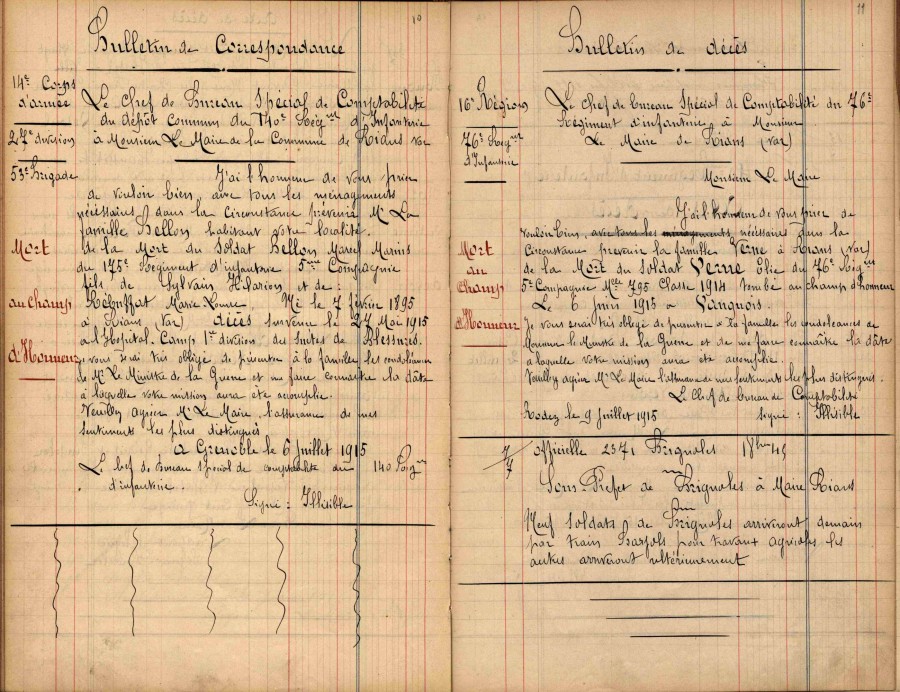 10
Bulletin de Correspondance
14e Corps
d'armée
27e division
53e Brigade
Le Chef de Bureau Spécial de Comptabilité
du dépôt commun du 140e Régnt d'Infanterie
à Monsieur Le Maire de la Commune de Rians Var
J'ai l'honneur de vous prier
de vouloir bien, avec tous les ménagements
nécessaires, dans la circonstance prévenir Mr La
famille Bellon habitant votre localité.
de la Mort du Soldat Bellon Marcel Marius
du 175e Régiment d'infanterie 5me Compagnie
fils de Sylvain Hilarion et de :
Marie Louise Né le 7 février 1895
à Rians (Var) décès survenu le 27 Mai 1915
à l'Hopital Camp 1re division des suites de Blessures.
Mort
au Champ
d'Honneur
je vous serai très obligé de présenter à la famille les condoléances
de Mr Le Ministre de la Guerre et me faire connaitre la date
à laquelle votre mission aura été accomplie.
Veuillez agréer Mr Le Maire l'assurance de mes
Sentiments les plus distingués
à Grenoble le 6 juillet 1915
Le chef de Bureau spécial de comptabilité du 140 Regnt
d'infanterie.
Signé : Illisible
11
Bulletin de décès
16e Région
76e Regnt
d'Infanterie
Le Chef de bureau Spécial de Comptabilité du 76e
Régiment d'infanterie à Monsieur
Le Maire de Rians (Var)
Monsieur Le Maire
J'ai l'honneur de vous prier de
vouloir bien, avec tous les ménagements nécessaires dans la
circonstance prévenir la famille Verne à Rians (Var)
de la Mort du Soldat Verne Elie du 76e Regnt
5e Compagnie Mle 795 Classe 1914 tombé au champ d'honneur
Le 6 juin 1915 à Vauquois.
Mort
au
Champ
d'Honneur
Je vous serai très obligé de présenter à la famille les condoléances de
Monsieur le Ministre de la Guerre et de me faire connaître la date
à laquelle votre mission aura été accomplie.
Veuillez agréer Mr Le Maire l'assurance de mes sentiments les plus distingués.
Le Chef de bureau de Comptabilité
Rodez le 9 juillet 1915 signé : Illisible
7/7 Officielle 2371 Brignoles 18h 45
Sous-Préfet de Brignoles à Maire Rians
Neuf soldats de Brignoles arriveront demain
par train Barjols pour travaux agricoles les
autres arriveront ultérieurement